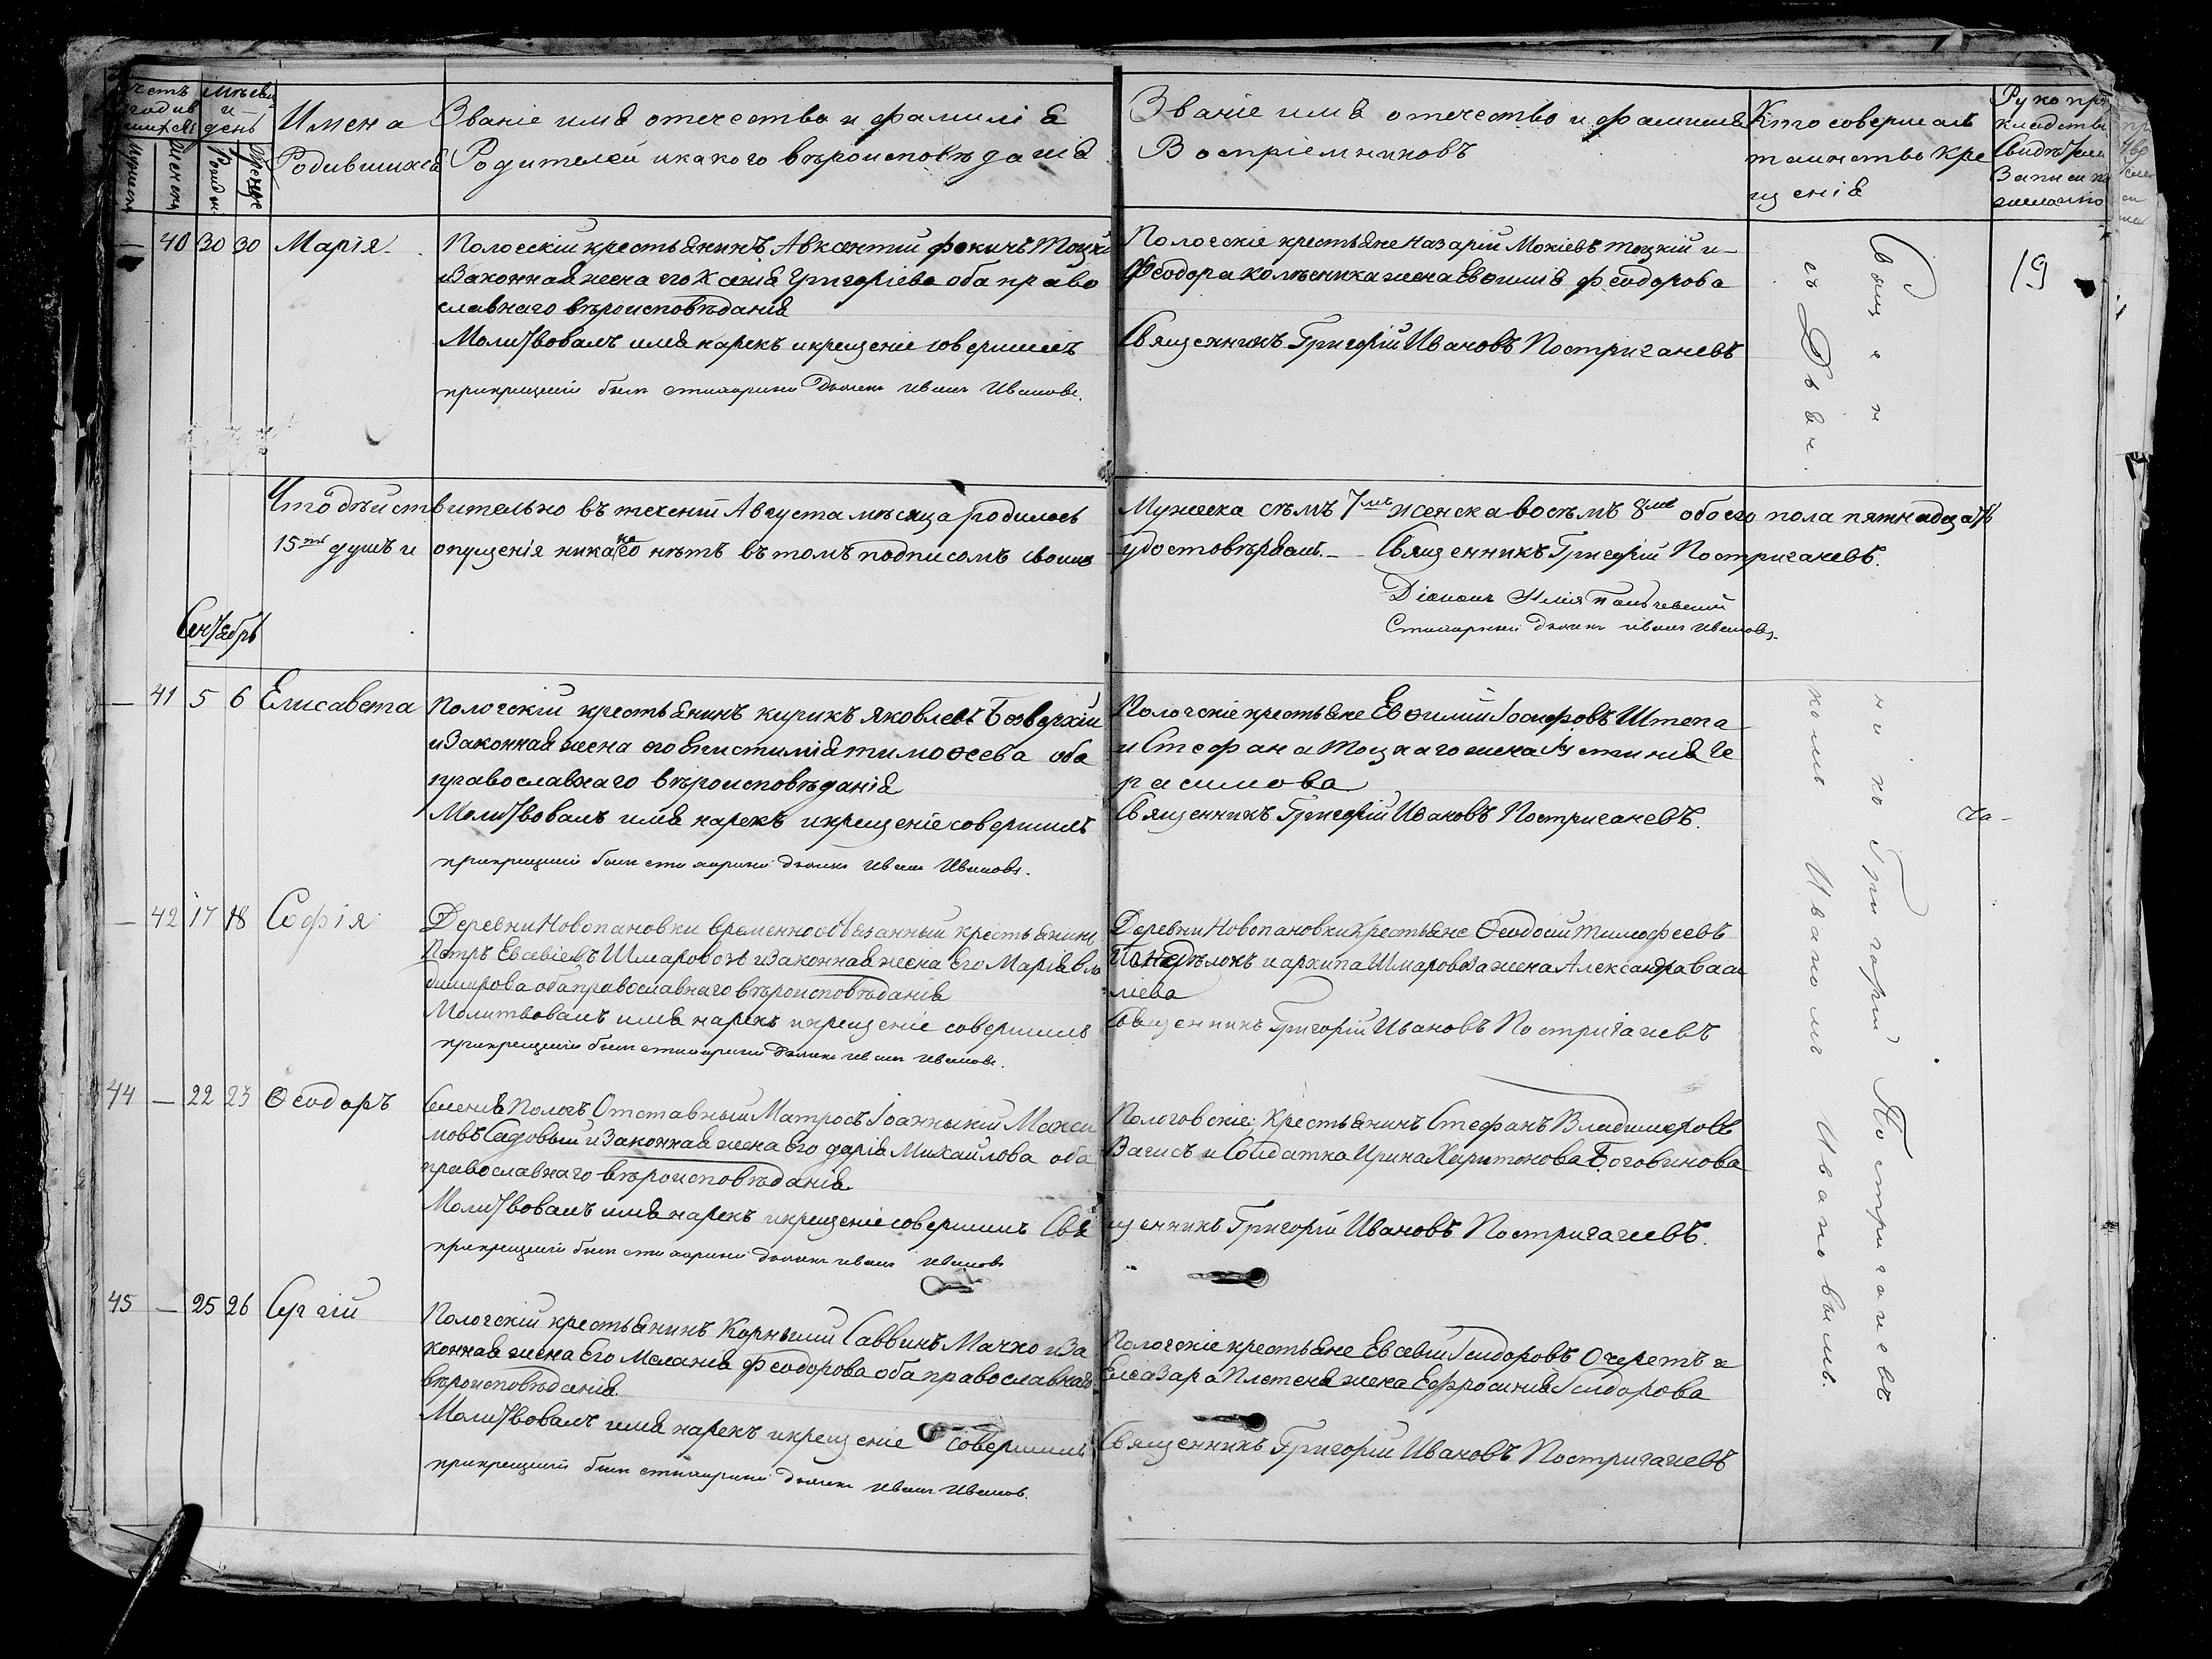 Счетъ родившихся
Мѣсяцъ и день
Имена
Родившихся
Званіе имя отечество и фамилія
Родителей и какого вѣроисповѣданія
Званіе имя отечество и фамилія
Воспріемниковъ
Кто совершалъ
таинство кре
щенія
Рукопри
кладство
свидѣтелей
записи по
желанію
Мужеска
Женска
Рожден.
Крещен.
— 40 30 30 Марія
Пологскій крестьянинъ Авксентій Фокичъ Тоцкі
и законная жена его Ксенія Григоріева оба право
славнаго вѣроисповѣданія
Молитвовалъ имя нарекъ и крещеніе совершилъ
при крещеніи былъ стихарный дьячекъ Иванъ Ивановъ.
Пологскіе крестьяне Назарій Мокіевъ Тоцкій и
Феодора колѣсника жена Евѳимія Феодорова
Священникъ Григорій Ивановъ Постригачевъ
19
Что дѣйствительно въ теченіи Августа мѣсяца родилось
15ть душъ и опущенія никакого нѣтъ въ томъ подписомъ своимъ
Мужеска съмъ 7мь женска восѣмъ 8мь обоего пола пятнадцать
удостовѣряемъ. — Священникъ Григорій Постригачевъ.
Діаконъ Илія
Стихарный дьячекъ Иванъ Ивановъ.
Сентябрь
— 41 5 6 Елисавета
Пологскій крестьянинъ Кирикъ Яковлевъ Безверхій
и законная жена его Епистимія Тимоѳеева оба
православнаго вѣроисповѣданія
Молитвовалъ имя нарекъ и крещеніе совершилъ
при крещеніи былъ стихарный дьячекъ Иванъ Ивановъ.
Пологскіе крестьяне Евѳимій Іосифовъ Штепа
и Стефана Тоцкаго жена Устинія Ге
расимова
Священникъ Григорій Ивановъ Постригачевъ.
— 42 17 18 Софія
Деревни Новопановки временнообязанный крестьянинъ
Петръ Евсевіевъ Шмаровозъ и законная жена Его Марія Вла
димирова оба православнаго вѣроисповѣданія
Молитвовалъ имя нарекъ и крещеніе совершилъ
при крещеніи былъ стихарный дьячекъ Иванъ Ивановъ.
Деревни Новопановки Крестьяне Ѳеодосій Тимофеевъ
Понедѣлокъ и Архипа Шмаровоза жена Александра Васи
ліева
Священникъ Григорій Ивановъ Постригачевъ
44 — 22 23 Ѳеодоръ
Селенія Пологъ Отставный Матросъ Іоанныкій Макси
мовъ Садовый и законная жена Его Дарія Михайлова оба
православнаго вѣроисповѣданія
Молитвовалъ имя нарекъ и крещеніе совершилъ Свя
при крещеніи былъ стихарный дьячекъ Иванъ Ивановъ
Пологовскіе; Крестьянинъ Стефанъ Владимеровъ
Вагисъ и Солдатка Ирина Харитонова Боговинова
щенникъ Григорій Ивановъ Постригачевъ.
45 — 25 26 Сергій
Пологскій крестьянинъ Корнилій Саввинъ Мачко и за
конная жена Его Меланія Феодорова оба православнаго
вѣроисповѣданія.
Молитвовалъ имя нарекъ и крещеніе совершилъ
при крещеніи былъ стихарный дьячекъ Иванъ Ивановъ.
Пологскіе крестьяне Евсевій Ісидоровъ Очеретъ и
Елеазара Плетеня жена Ефросинія Ісидорова
Священникъ Григорій Ивановъ Постригачевъ
Священникъ Григорій Постригачевъ
съ Дьячкомъ Иваномъ Ивановымъ.